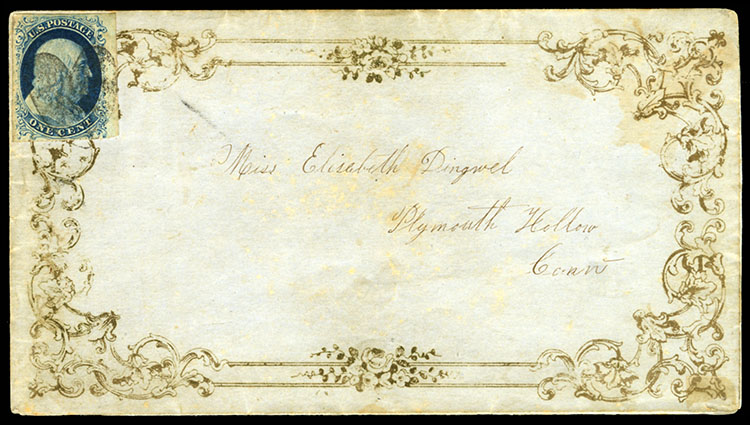 U.S. POSTAGE
ONE CENT
Miss Elisabeth Dingwel
Plymouth Hollow
Conn